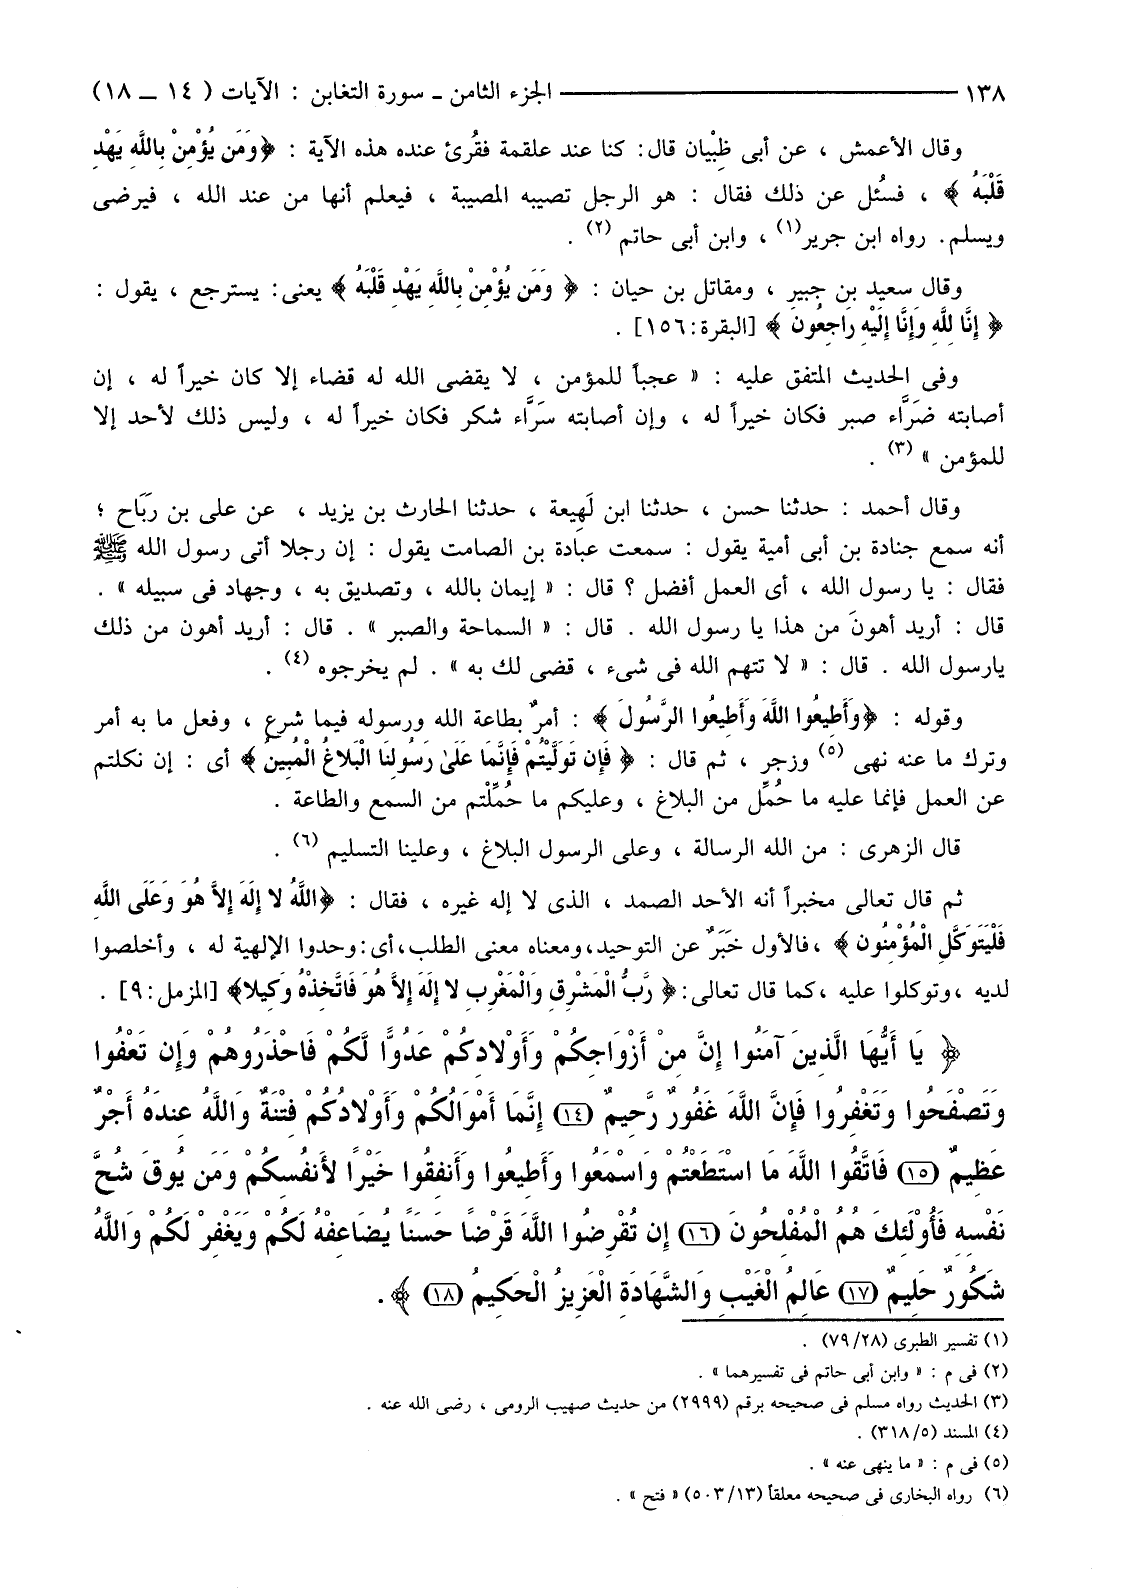 ١٣٨ ــــــــــــــــ الجزء الثامن ـ سورة التغابن : الآيات ( ١٤ ــ ١٨)
وقال الأعمش ، عن أبى ظِبْيان قال: كنا عند علقمة فقُرئ عنده هذه الآية : ﴿وَمَن يُؤْمِنْ بِاللَّهِ يَهْدِ
قَلْبَهُ ﴾ ، فسُئل عن ذلك فقال : هو الرجل تصيبه المصيبة ، فيعلم أنها من عند الله ، فيرضى
ويسلم. رواه ابن جرير(١) ، وابن أبى حاتم (٢) .
وقال سعيد بن جبير ، ومقاتل بن حيان : ﴿ وَمَن يُؤْمِنْ بِاللَّهِ يَهْدِ قَلْبَهُ ﴾ يعنى: يسترجع ، يقول :
﴿ إِنَّا لِلَّهِ وَإِنَّا إِلَيْهِ رَاجِعُونَ ﴾ [البقرة:١٥٦] .
وفى الحديث المتفق عليه : « عجباً للمؤمن ، لا يقضى الله له قضاء إلا كان خيراً له ، إن
أصابته ضَرَّاء صبر فكان خيراً له ، وإن أصابته سَرَّاء شكر فكان خيراً له ، وليس ذلك لأحد إلا
للمؤمن » (٣) .
وقال أحمد : حدثنا حسن ، حدثنا ابن لَهِيعة ، حدثنا الحارث بن يزيد ، عن على بن رَبَاح ؛
أنه سمع جنادة بن أبى أمية يقول : سمعت عبادة بن الصامت يقول : إن رجلا أتى رسول الله ﷺ
فقال : يا رسول الله ، أى العمل أفضل ؟ قال : « إيمان بالله ، وتصديق به ، وجهاد فى سبيله » .
قال : أريد أهونَ من هذا يا رسول الله . قال : « السماحة والصبر » . قال : أريد أهون من ذلك
يارسول الله . قال : « لا تتهم الله فى شىء ، قضى لك به » . لم يخرجوه (٤) .
وقوله : ﴿وَأَطِيعُوا اللَّهَ وَأَطِيعُوا الرَّسُولَ ﴾ : أمرٌ بطاعة الله ورسوله فيما شرع ، وفعل ما به أمر
وترك ما عنه نهى (٥) وزجر ، ثم قال : ﴿ فَإِن تَوَلَّيْتُمْ فَإِنَّمَا عَلَىٰ رَسُولِنَا الْبَلاغُ الْمُبِينُ ﴾ أى : إن نكلتم
عن العمل فإنما عليه ما حُمِّل من البلاغ ، وعليكم ما حُمِّلْتم من السمع والطاعة .
قال الزهرى : من الله الرسالة ، وعلى الرسول البلاغ ، وعلينا التسليم (٦) .
ثم قال تعالى مخبراً أنه الأحد الصمد ، الذى لا إله غيره ، فقال : ﴿اللَّهُ لا إِلَهَ إِلاَّ هُوَ وَعَلَى اللَّهِ
فَلْيَتَوَكَّلِ الْمُؤْمِنُونَ ﴾ ،فالأول خَبَرٌ عن التوحيد،ومعناه معنى الطلب،أى:وحدوا الإلهية له ، وأخلصوا
لديه ،وتوكلوا عليه ،كما قال تعالى:﴿ رَبُّ الْمَشْرِقِ وَالْمَغْرِبِ لا إِلَهَ إِلاَّ هُوَ فَاتَّخِذْهُ وَكِيلا﴾ [المزمل:٩] .
﴿ يَا أَيُّهَا الَّذِينَ آمَنُوا إِنَّ مِنْ أَزْوَاجِكُمْ وَأَوْلادِكُمْ عَدُوًّا لَّكُمْ فَاحْذَرُوهُمْ وَإِن تَعْفُوا
وَتَصْفَحُوا وَتَغْفِرُوا فَإِنَّ اللَّهَ غَفُورٌ رَّحِيمٌ (١٤) إِنَّمَا أَمْوَالُكُمْ وَأَوْلادُكُمْ فِتْنَةٌ وَاللَّهُ عِندَهُ أَجْرٌ
عَظِيمٌ (١٥) فَاتَّقُوا اللَّهَ مَا اسْتَطَعْتُمْ وَاسْمَعُوا وَأَطِيعُوا وَأَنفِقُوا خَيْرًا لأَنفُسِكُمْ وَمَن يُوقَ شُحَّ
نَفْسِهِ فَأُوْلَئِكَ هُمُ الْمُفْلِحُونَ (١٦) إِن تُقْرِضُوا اللَّهَ قَرْضًا حَسَنًا يُضَاعِفْهُ لَكُمْ وَيَغْفِرْ لَكُمْ وَاللَّهُ
شَكُورٌ حَلِيمٌ (١٧) عَالِمُ الْغَيْبِ وَالشَّهَادَةِ الْعَزِيزُ الْحَكِيمُ (١٨) ﴾ .
(١) تفسير الطبرى (٧٩/٢٨) .
(٢) فى م : « وابن أبى حاتم فى تفسيرهما » .
(٣) الحديث رواه مسلم فى صحيحه برقم (٢٩٩٩) من حديث صهيب الرومى ، رضى الله عنه .
(٤) المسند (٣١٨/٥) .
(٥) فى م : « ما ينهى عنه » .
(٦) رواه البخارى فى صحيحه معلقاً (٥٠٣/١٣) « فتح » .